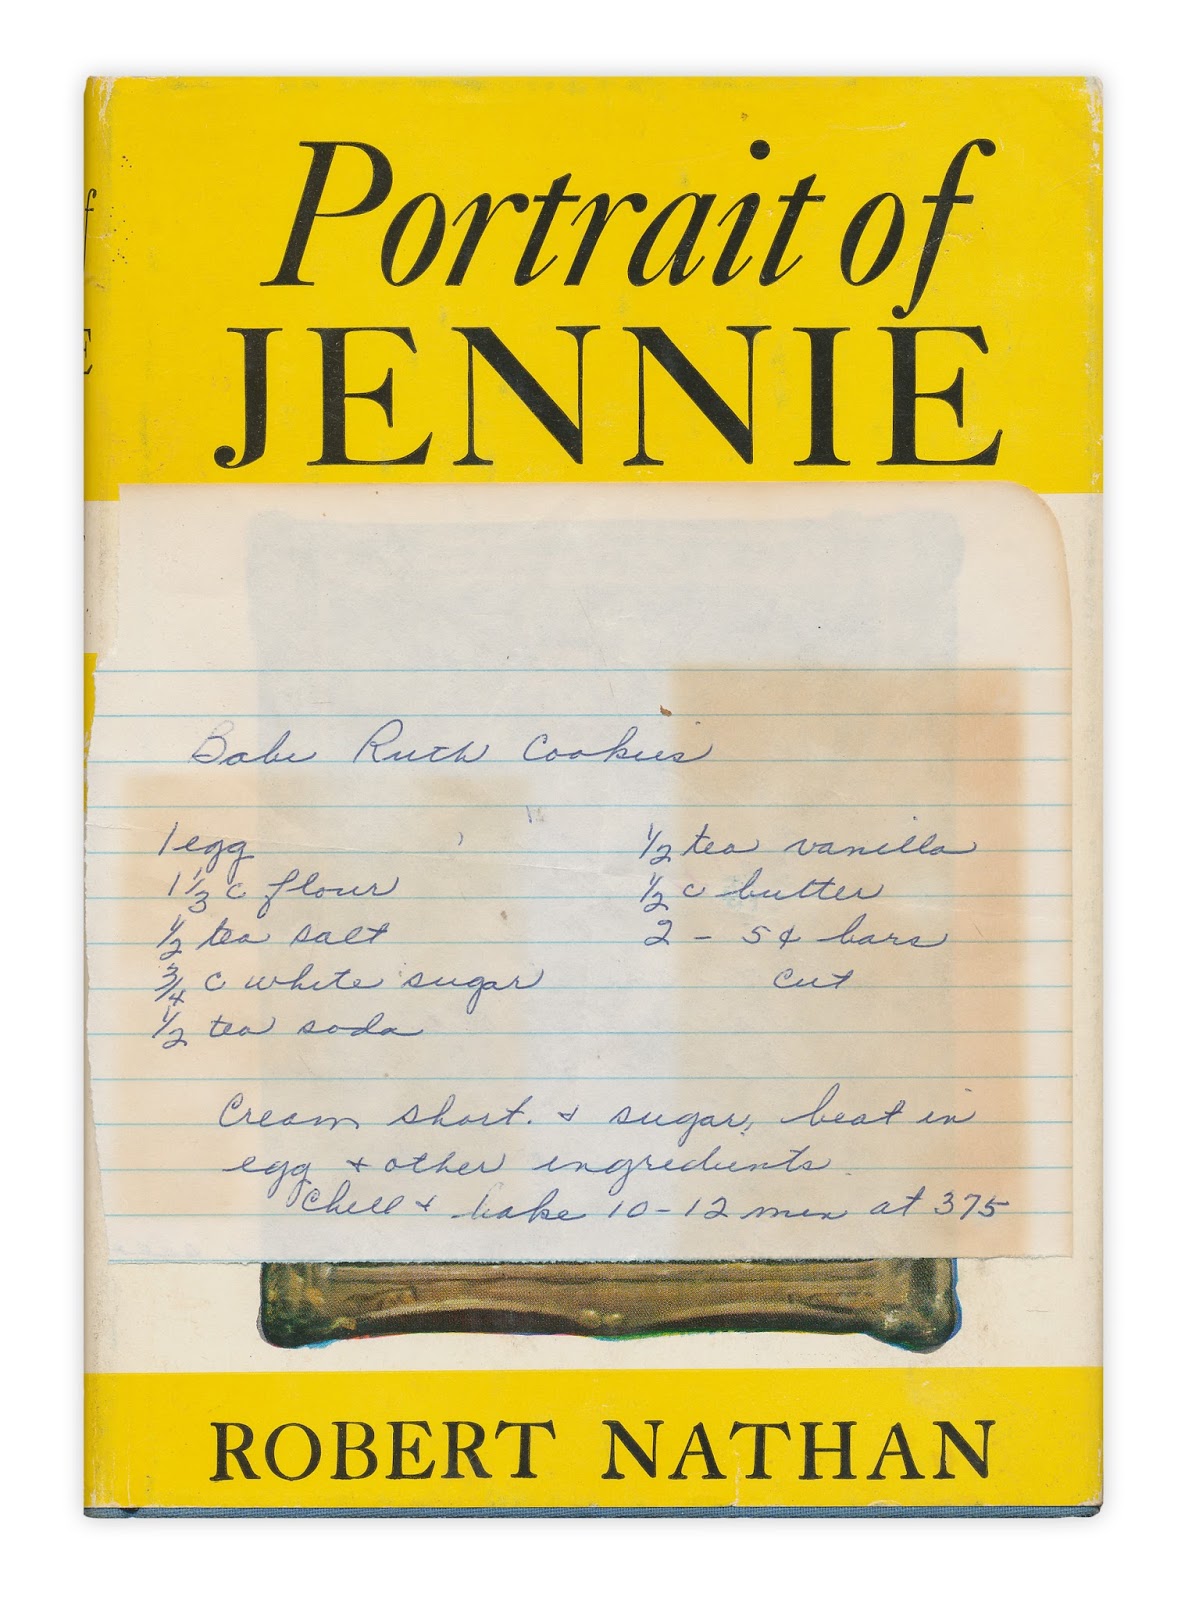 Portrait of
JENNIE
Babe Ruth Cookies
1 egg
1 1/3 c flour
1/2 tea salt
3/4 c white sugar
1/2 tea soda
1/2 tea vanilla
1/2 c butter
2 - 5¢ bars
cut
Cream short. & sugar, beat in
egg & other ingredients.
Chill & bake 10-12 min at 375
ROBERT NATHAN